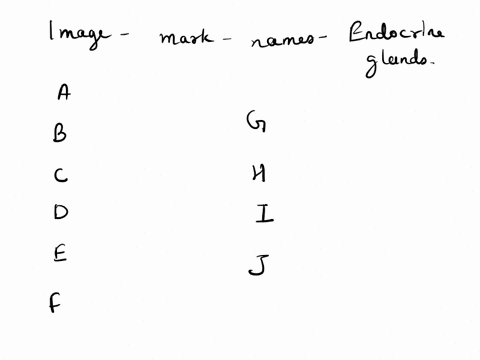 Image - mark - names - Endocrine
glands.
A
G
B
C H
D I
E J
F